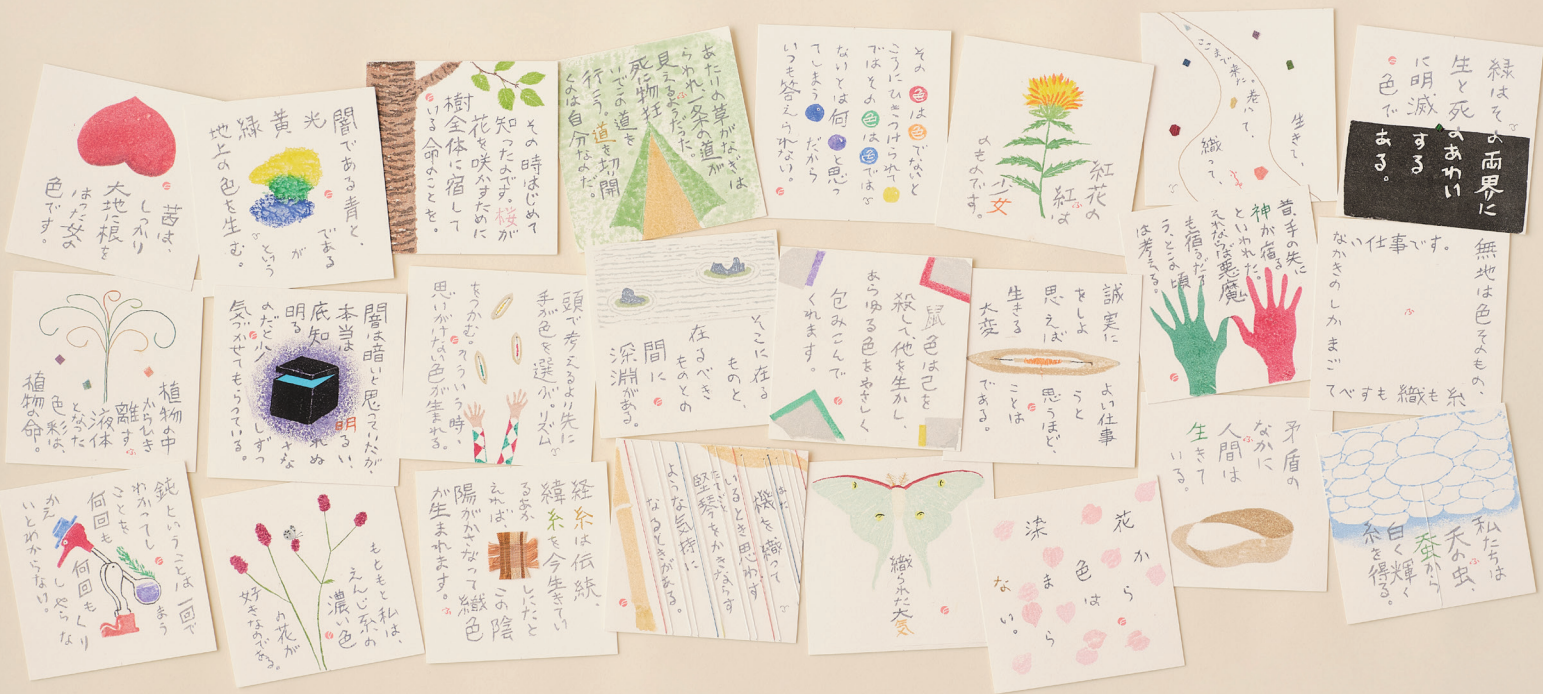 茜は、
しっかり
大地に根を
はった女の
色です。
闇である青と、
光である
黄が
緑という
地上の色を生む。
その時はじめて
知ったのです。桜が
花を咲かすために
樹全体に宿して
いる命のことを。
あたりの草がなぎは
らわれ、一条の道が
見えるようだった。
死に物狂
いでこの道を
行こう。道を切り開
くのは自分なのだ。
その色は色でないと
こころにひきつけられて
ではその色は色では
ないとは何色と思っ
てしまう だから
いつも答えられない。
紅花の
紅は
少女
のものです。
ここまで来た。
巻いて、
織って、
生きて、
緑はその両界に
生と死のあわい
に明滅する
色である。
植物の中
からひき
離す
液体
となった
色彩は、
植物の命。
闇は暗いと思っていたが、
本当は明るい、
底知れぬ
明るさな
のだと少しずつ
気づかせてもらっている。
頭で考えるより先に
手が色を選ぶ。リズム
をつかむ。そういう時、
思いがけない色が生まれる。
そこに在る
ものと、
在るべき
ものとの
間に
深淵がある。
鼠色は己を
殺して、他を生かし、
あらゆる色をやさしく
包みこんで
くれます。
誠実によい仕事
をしようと
思えば思うほど、
生きることは
大変である。
昔、手の先に
神が宿る
といわれた。
それならば悪魔
も宿るだろ
う、とこの頃
は考える。
無地は色そのもの、
糸も織もすべて
ごまかしのきかな
ない仕事です。
鈍ということは一回で
わかってしまう
ことを
何回も何回もくり
かえしやらな
いとわからない。
もともと私は、
えんじ系の
濃い色
の花が
好きなのである。
経糸は伝統、
緯糸を今生きてい
るあかしにたと
えれば、この陰
陽がかさなって織色
が生まれます。
機を織って
いるとき思わず、
竪琴をかきならす
ような気持に
なるときがある。
織られた大気
花から
色は
染まら
ない。
矛盾の
なかに
人間は
生きて
いる。
私たちは
天の虫、
蚕から
白く輝く
糸を得る。